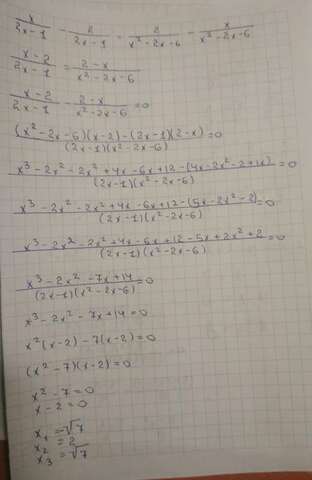 x/(2x-1) - 2/(2x-1) = 2/(x²-2x-6) - x/(x²-2x-6)
(x-2)/(2x-1) = (2-x)/(x²-2x-6)
(x-2)/(2x-1) - (2-x)/(x²-2x-6) = 0
((x²-2x-6)(x-2)-(2x-1)(2-x))/((2x-1)(x²-2x-6)) = 0
(x³-2x²-2x²+4x-6x+12-(4x-2x²-2+1x))/((2x-1)(x²-2x-6)) = 0
(x³-2x²-2x²+4x-6x+12-(5x-2x²-2))/((2x-1)(x²-2x-6)) = 0
(x³-2x²-2x²+4x-6x+12-5x+2x²+2)/((2x-1)(x²-2x-6)) = 0
(x³-2x²-7x+14)/((2x-1)(x²-2x-6)) = 0
x³-2x²-7x+14=0
x²(x-2)-7(x-2)=0
(x²-7)(x-2)=0
x²-7=0
x-2=0
x₁=-√7
x₂=2
x₃=√7